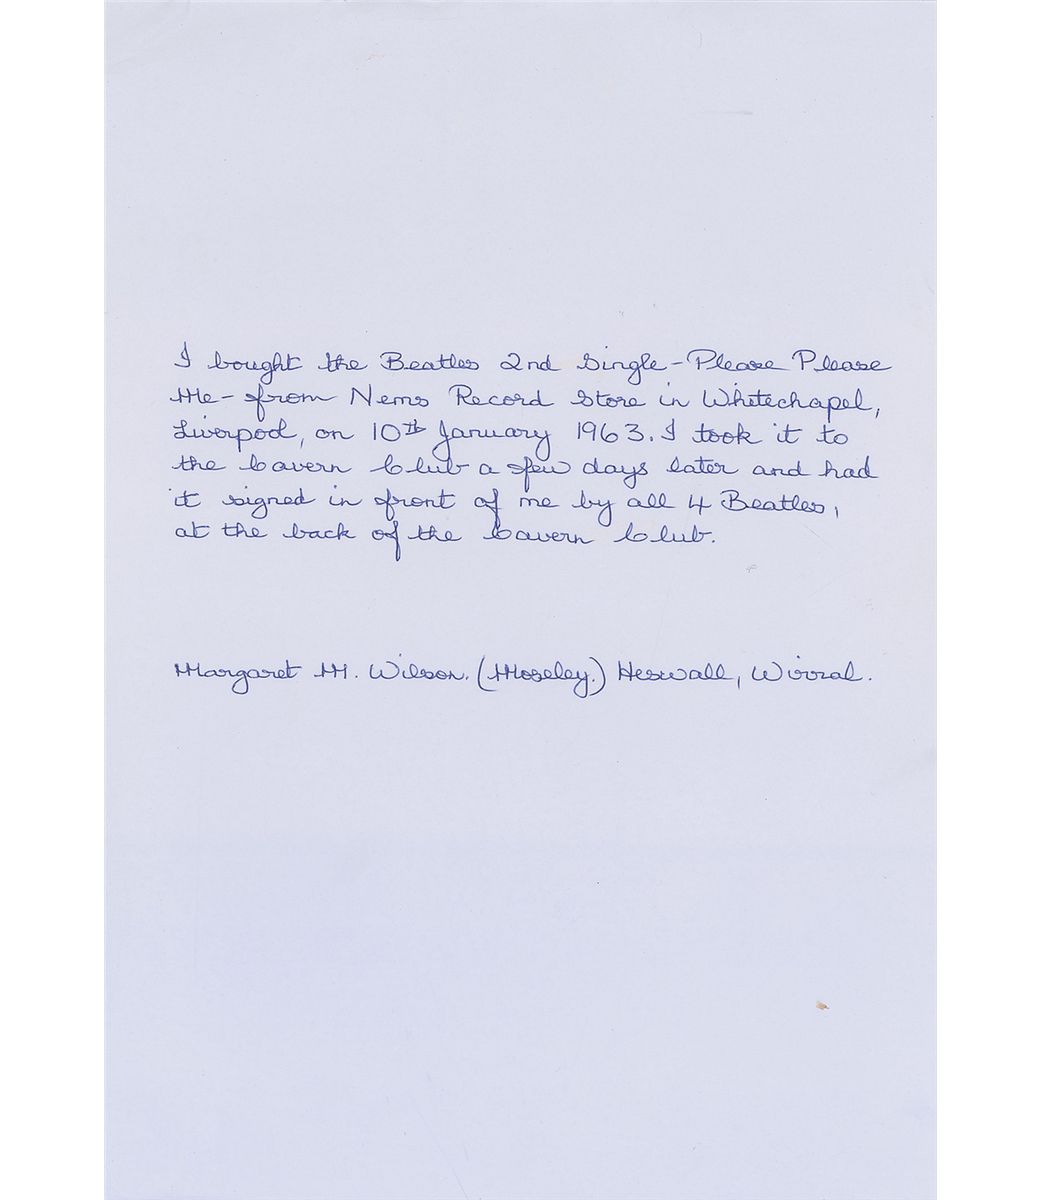 I bought the Beatles 2nd Single - Please Please
Me - from Nems Record Store in Whitechapel,
Liverpool, on 10th January 1963. I took it to
the Cavern Club a few days later and had
it signed in front of me by all 4 Beatles,
at the back of the Cavern Club.
Margaret M. Wilson. (Moseley.) Heswall, Wirral.